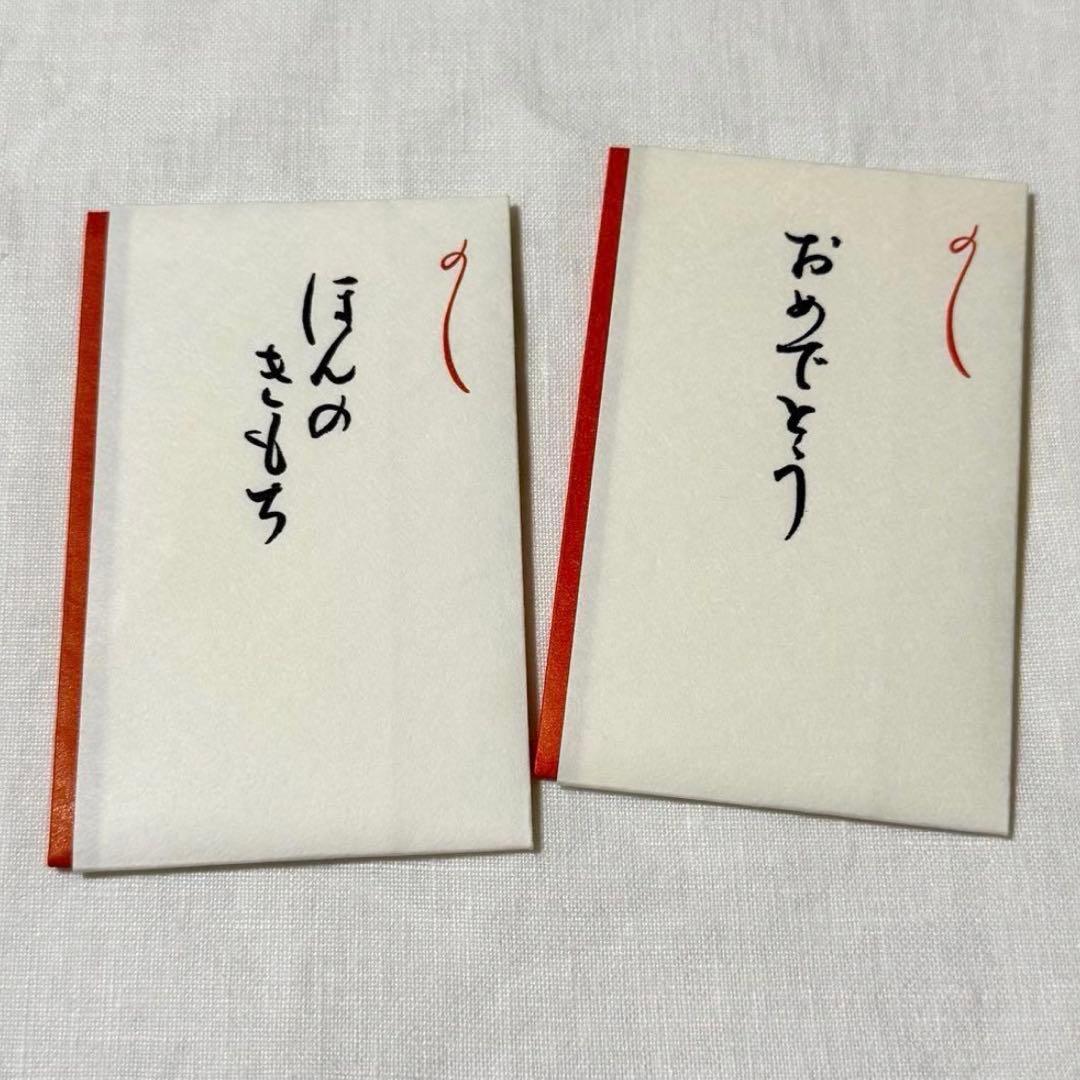 ほんの
きもち
おめでとう